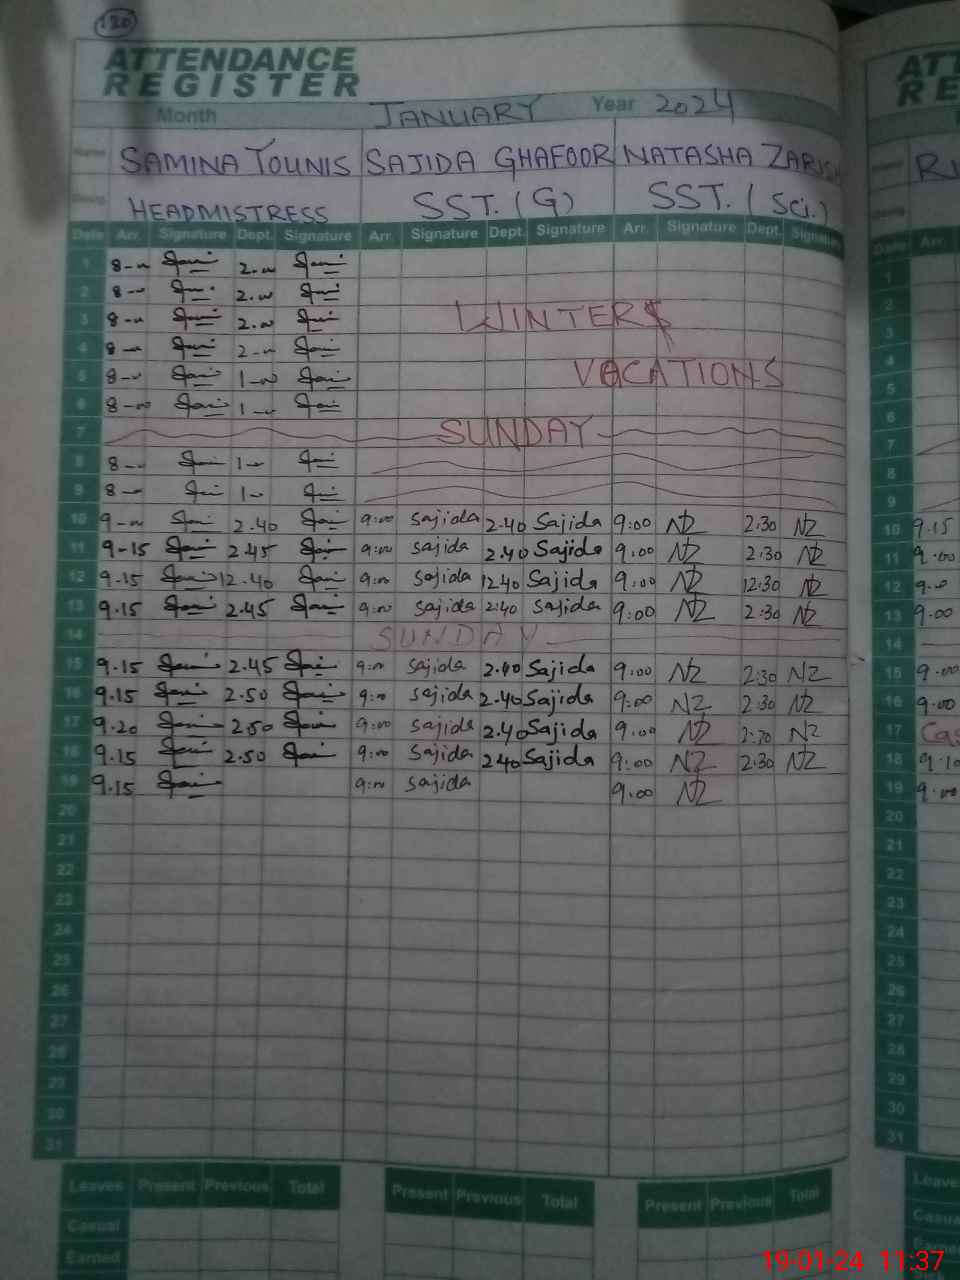 120
ATTENDANCE
REGISTER
Month JANUARY Year 2024
Name SAMINA YOUNIS SAJIDA GHAFOOR NATASHA ZARISH
HEADMISTRESS SST. (G) SST. (Sci.)
Date Arr. Signature Dept. Signature Arr. Signature Dept. Signature Arr. Signature Dept. Signature
1 8-00 2.00
2 8-00 2.00
3 8-00 2.00 WINTERS
4 8-00 2-00
5 8-00 1-00 VACATIONS
6 8-00 1-00
7 SUNDAY
8 8-00 1-00
9 8-00 1-00
10 9-00 2.40 9:00 Sajida 2.40 Sajida 9:00 NZ 2:30 NZ
11 9-15 2.45 9:00 Sajida 2.40 Sajida 9:00 NZ 2:30 NZ
12 9.15 12.40 9:00 Sajida 12.40 Sajida 9:00 NZ 12:30 NZ
13 9.15 2.45 9:00 Sajida 2:40 Sajida 9:00 NZ 2:30 NZ
14 SUNDAY
15 9.15 2.45 9:00 Sajida 2.40 Sajida 9:00 NZ 2:30 NZ
16 9.15 2.50 9:00 Sajida 2.40 Sajida 9:00 NZ 2:30 NZ
17 9.20 2.50 9:00 Sajida 2.40 Sajida 9:00 NZ 2:30 NZ
18 9.15 2.50 9:00 Sajida 2.40 Sajida 9:00 NZ 2:30 NZ
19 9.15 9:00 Sajida 9:00 NZ
20
21
22
23
24
25
26
27
28
29
30
31
Leaves Present Previous Total Present Previous Total Present Previous Total
Casual
Earned
ATT
RE
Date Arr.
1
2
3
4
5
6
7
8
9
10 9.15
11 9.00
12 9.00
13 9.00
14
15 9.00
16 9.00
17 Cas
18 9.10
19 9.00
20
21
22
23
24
25
26
27
28
29
30
31
Leave
Casua
Earne
19-01-24 11:37